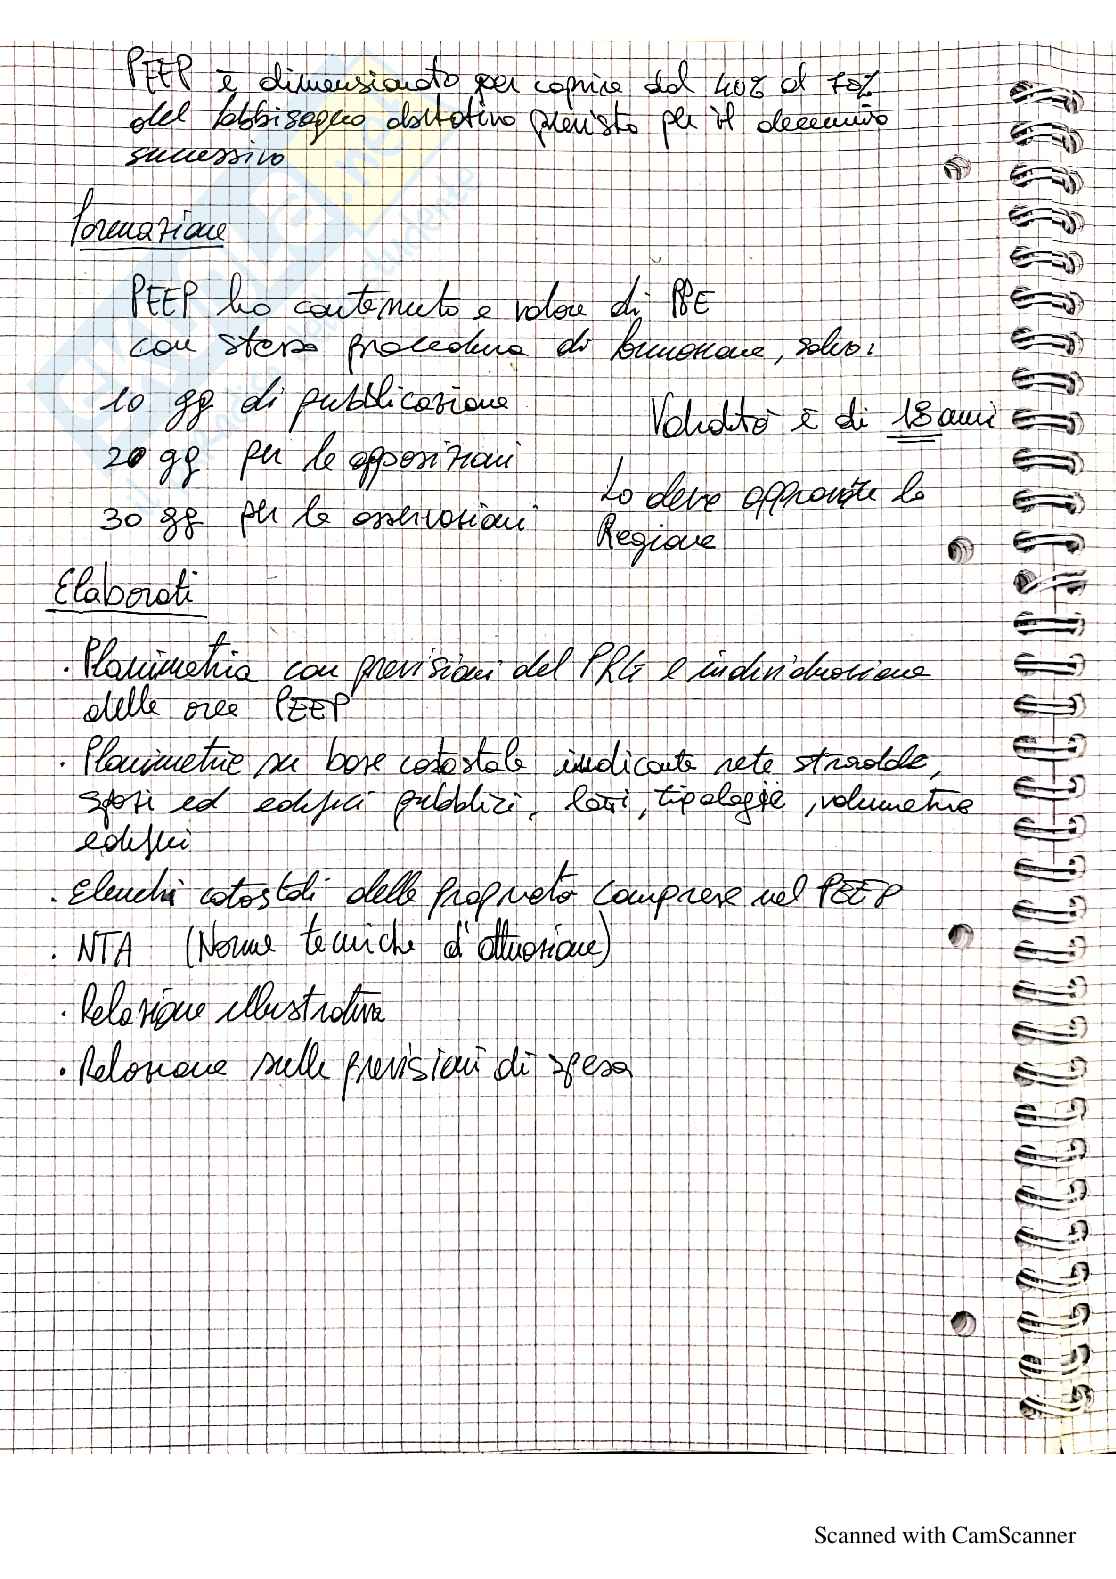 PEEP è dimensionato per coprire dal 40% al 70%
del fabbisogno abitativo previsto per il decennio
successivo
Formazione
PEEP ha contenuto e valore di PPE
con stessa procedura di formazione, salvo:
10 gg di pubblicazione
Validità è di 18 anni
20 gg per le opposizioni
Lo deve approvare la
30 gg per le osservazioni
Regione
Elaborati
· Planimetria con previsioni del PRG e individuazione
delle aree PEEP
· Planimetrie su base catastale indicante rete stradale,
spazi ed edifici pubblici, lotti, tipologie, volumetria
edifici
· Elenchi catastali delle proprietà comprese nel PEEP
· NTA (Norme tecniche d'attuazione)
· Relazione illustrativa
· Relazione sulle previsioni di spesa
Scanned with CamScanner